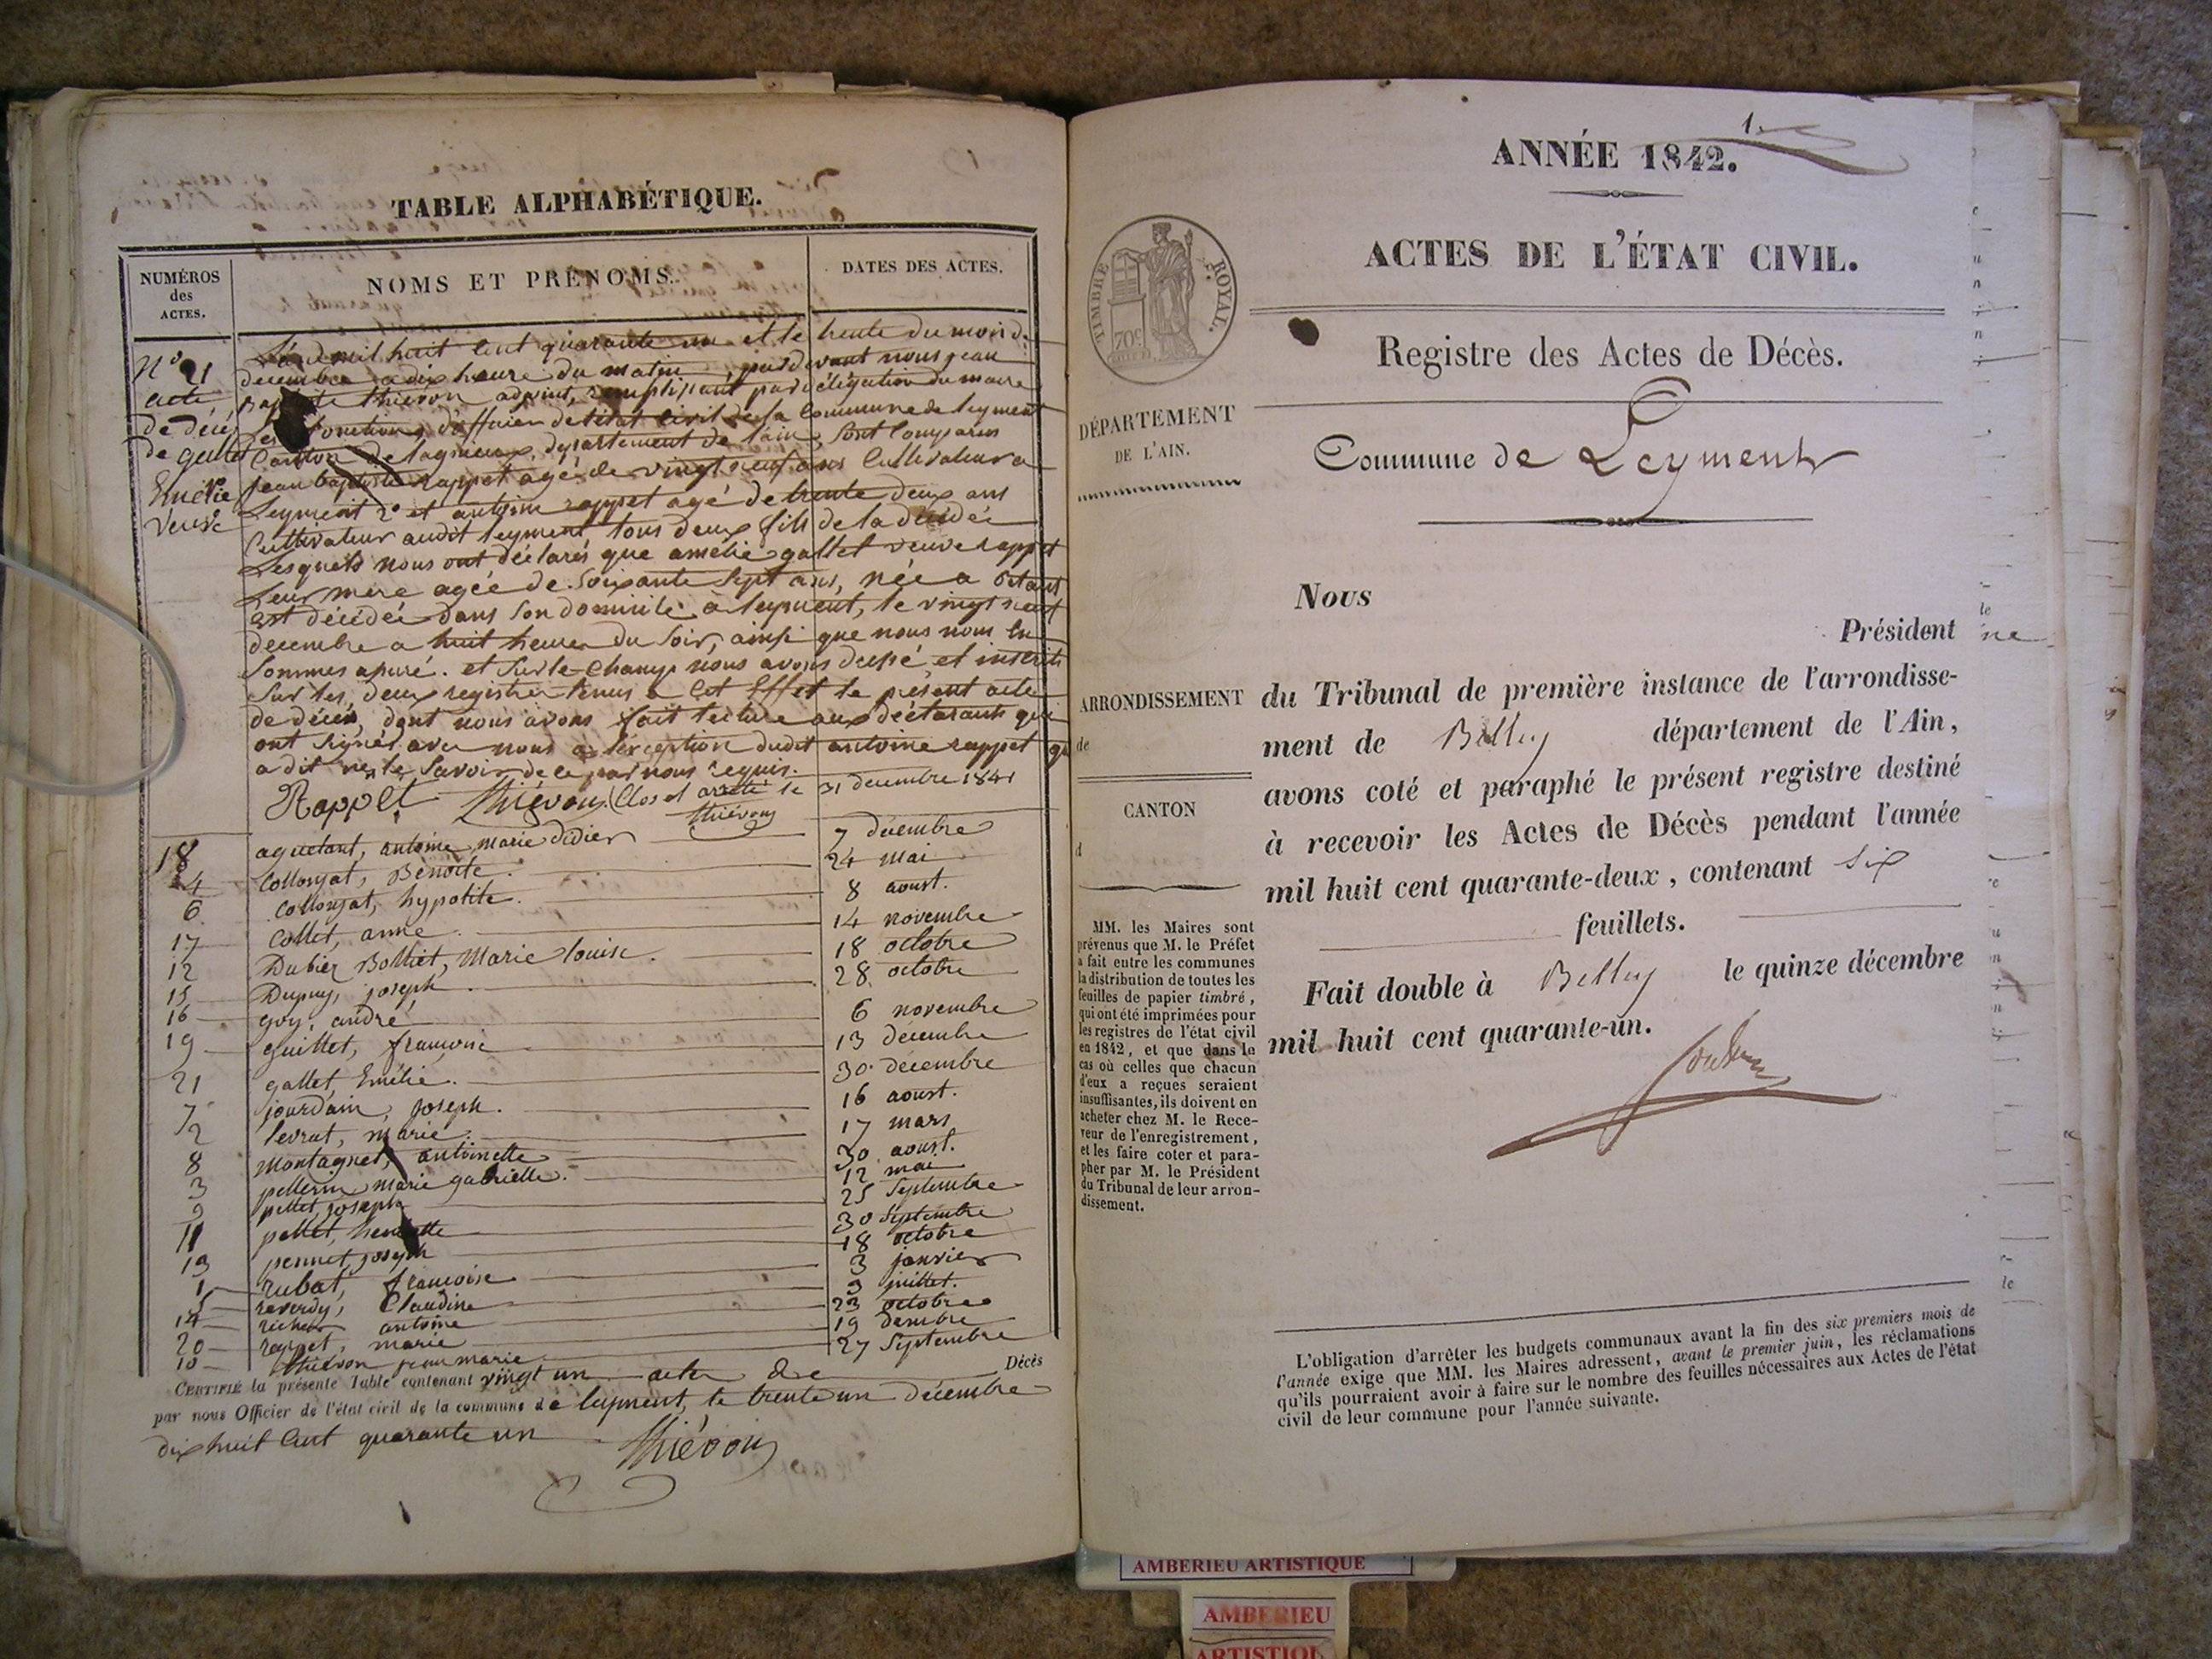 TABLE ALPHABÉTIQUE.
NUMÉROS
des
ACTES.
NOMS ET PRÉNOMS.
DATES DES ACTES.
N° 21
acte
de décé
de gallet
Emélie
veuve
L'an mil huit cent quarante un et le trente du mois de
decembre a dix heure du matin pardevant nous jean
thiévon adjoint, remplissant par délégation du maire
fonctions d'officier de l'état civil de la Commune de leyment
Canton de lagnieux, departement de l'ain, sont Comparus
jean baptiste rappet agé de vingt neuf ans Cultivateur a
Leyment 2° et antoine rappet agé de trente deux ans
Cultivateur audit leyment, tous deux fils de la décédée
Lesquels nous ont déclarés que amélie gallet veuve rappet
Leur mere agée de soixante sept ans, née a
est décédée dans son domicile a leyment, le vingt neuf
decembre a huit heures du soir, ainsi que nous nous en
sommes assuré. et sur le champ nous avons dressé et inscrit
sur les deux registres tenus a cet effet le présent acte
de décés, dont nous avons fait lecture aux déclarants qui
ont signés avec nous a l'exception dudit antoine rappet qui
a dit ne le savoir de ce par nous requis.
Rappet Thiévon Clos et arreté le 31 decembre 1841
Thiévon
18 aguetant, antoine marie didier 7 décembre
4 Collonjat, Benoite. 24 mai
6 Collonjat, hypolite. 8 aoust.
17 Collet, anne. 14 novembre
12 Dubiez Bolliet, Marie louise. 18 octobre
15 Dupuy, joseph. 28 octobre
16 goy, andré 6 novembre
19 guillet, francoise 13 decembre
21 gallet, Emélie. 30 decembre
7 jourdain, joseph. 16 aoust.
2 levrat, marie. 17 mars
8 Montagnet, antoinette 30 aoust.
3 pellerin marie gabrielle. 12 mai
9 pellet, joseph 25 septembre
11 pellet, henriette 30 septembre
13 pennet, joseph 18 octobre
1 rubat, francoise 3 janvier
5 reverdy, Claudine 3 juillet.
14 antoine 23 octobre
20 rappet, marie 19 decembre
10 thiévon jean marie 27 septembre
CERTIFIÉ la présente Table contenant vingt un actes de Décès
par nous Officier de l'état civil de la commune de leyment, le trente un décembre
dix huit cent quarante un
Thiévon
1.
ANNÉE 1842.
ACTES DE L'ÉTAT CIVIL.
TIMBRE ROYAL.
70c
Registre des Actes de Décès.
DÉPARTEMENT
DE L'AIN.
Commune de Leyment
Nous
Président
ARRONDISSEMENT
de
du Tribunal de première instance de l'arrondisse-
ment de Belley département de l'Ain,
avons coté et paraphé le présent registre destiné
à recevoir les Actes de Décès pendant l'année
mil huit cent quarante-deux, contenant six
feuillets.
Fait double à Belley le quinze décembre
mil huit cent quarante-un.
CANTON
d
MM. les Maires sont
prévenus que M. le Préfet
a fait entre les communes
la distribution de toutes les
feuilles de papier timbré,
qui ont été imprimées pour
les registres de l'état civil
en 1842, et que dans le
cas où celles que chacun
d'eux a reçues seraient
insuffisantes, ils doivent en
acheter chez M. le Rece-
veur de l'enregistrement,
et les faire coter et para-
pher par M. le Président
du Tribunal de leur arron-
dissement.
L'obligation d'arrêter les budgets communaux avant la fin des six premiers mois de
l'année exige que MM. les Maires adressent, avant le premier juin, les réclamations
qu'ils pourraient avoir à faire sur le nombre des feuilles nécessaires aux Actes de l'état
civil de leur commune pour l'année suivante.
AMBERIEU ARTISTIQUE
AMBERIEU
ARTISTIQU